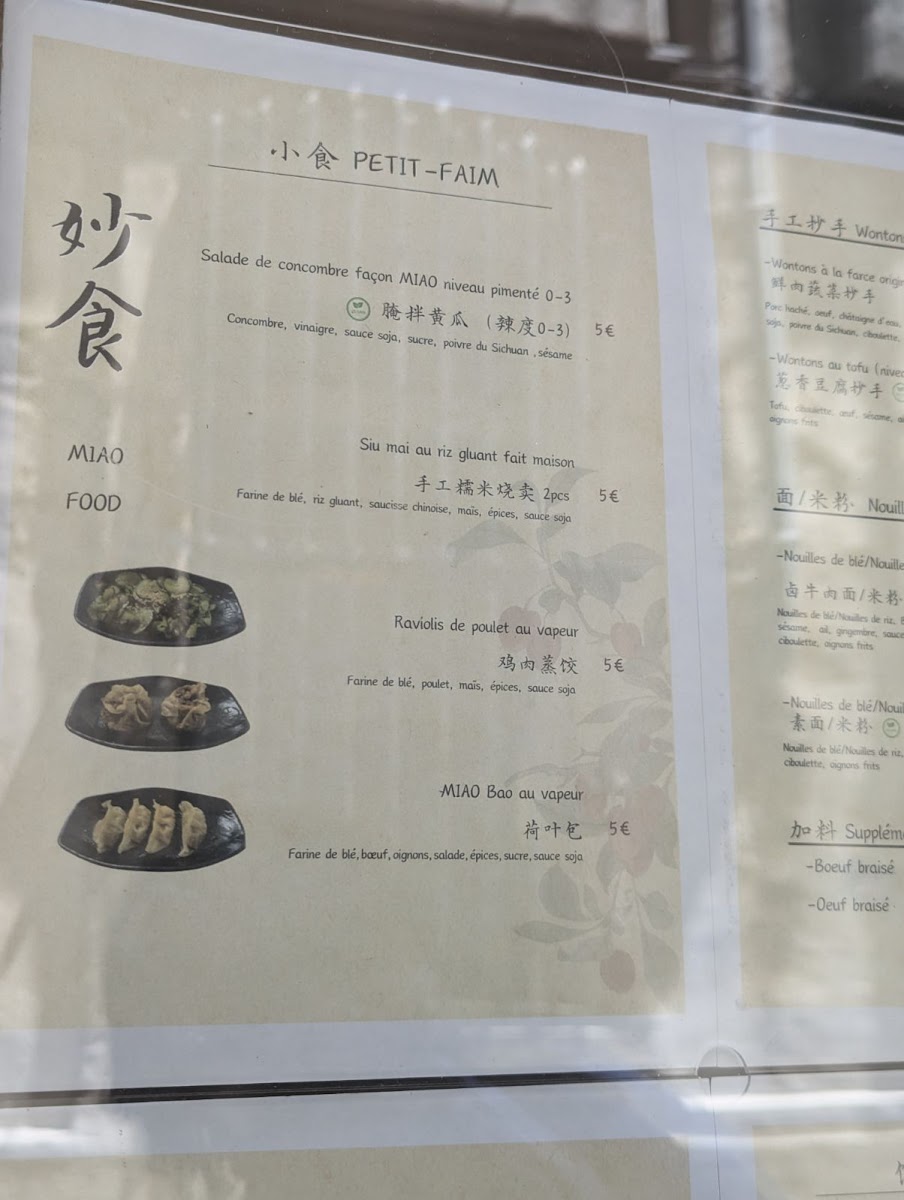 小食 PETIT-FAIM
妙食
MIAO
FOOD
Salade de concombre façon MIAO niveau pimenté 0-3
腌拌黄瓜 (辣度0-3) 5€
Concombre, vinaigre, sauce soja, sucre, poivre du Sichuan ,sésame
Siu mai au riz gluant fait maison
手工糯米烧卖 2pcs 5€
Farine de blé, riz gluant, saucisse chinoise, maïs, épices, sauce soja
Raviolis de poulet au vapeur
鸡肉蒸饺 5€
Farine de blé, poulet, maïs, épices, sauce soja
MIAO Bao au vapeur
荷叶包 5€
Farine de blé,bœuf,oignons,salade,épices,sucre,sauce soja
手工抄手 Wonton
-Wontons à la farce origi
鲜肉蔬菜抄手
Porc haché, œuf, châtaigne d'eau,
soja, poivre du Sichuan, ciboulette,
-Wontons au tofu (nivea
葱香豆腐抄手
Tofu, ciboulette, œuf, sésame,
oignons frits
面/米粉 Nouill
-Nouilles de blé/Nouille
卤牛肉面/米粉
Nouilles de blé/Nouilles de riz,
sésame, ail, gingembre, sauce
ciboulette, oignons frits
-Nouilles de blé/Nouil
素面/米粉
Nouilles de blé/Nouilles de riz,
ciboulette, oignons frits
加料 Supplém
-Boeuf braisé
-Oeuf braisé